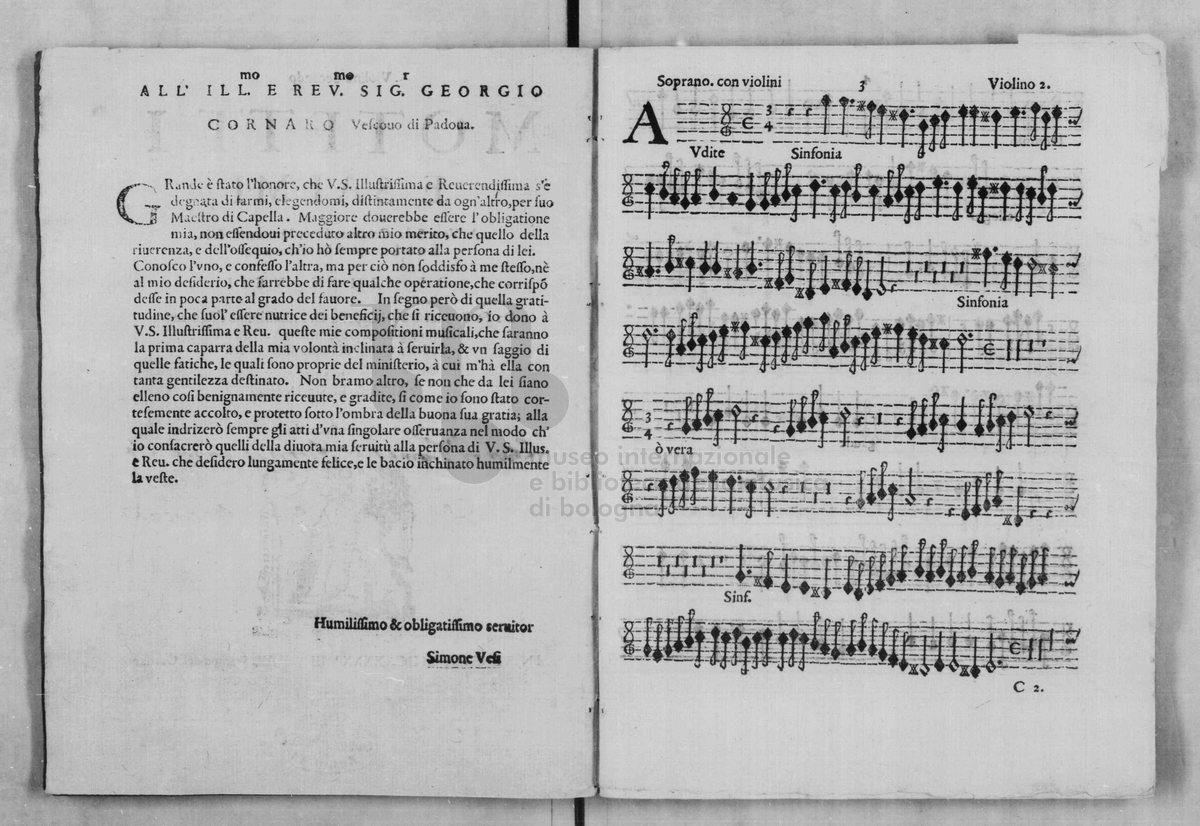 mo mo r
ALL' ILL. E REV. SIG. GEORGIO
CORNARO Vescouo di Padoua.
GRande è stato l'honore, che V.S. Illustrissima e Reuerendissima s'è
degnata di farmi, elegendomi, distintamente da ogn'altro, per suo
Maestro di Capella. Maggiore douerebbe essere l'obligatione
mia, non essendoui preceduto altro mio merito, che quello della
riuerenza, e dell'ossequio, ch'io hò sempre portato alla persona di lei.
Conosco l'vno, e confesso l'altra, ma per ciò non soddisfò à me stesso, nè
al mio desiderio, che sarrebbe di fare qualche operatione, che corrispõ
desse in poca parte al grado del fauore. In segno però di quella grati-
tudine, che suol' essere nutrice dei beneficij, che si riceuono, io dono à
V.S. Illustrissima e Reu. queste mie compositioni musicali, che saranno
la prima caparra della mia volontà inclinata à seruirla, & vn saggio di
quelle fatiche, le quali sono proprie del ministerio, à cui m'hà ella con
tanta gentilezza destinato. Non bramo altro, se non che da lei siano
elleno così benignamente riceuute, e gradite, sì come io sono stato cor-
tesemente accolto, e protetto sotto l'ombra della buona sua gratia; alla
quale indrizerò sempre gli atti d'vna singolare osseruanza nel modo ch'
io consacrerò quelli della diuota mia seruitù alla persona di V. S. Illus.
e Reu. che desidero lungamente felice, e le bacio inchinato humilmente
la veste.
Humilissimo & obligatissimo seruitor
Simone Vesi
Soprano. con violini 3 Violino 2.
A
3
4
Vdite Sinfonia
Sinfonia
3
4
ò vera
Sinf.
C 2.
museo internazionale
e biblioteca della musica
di bologna